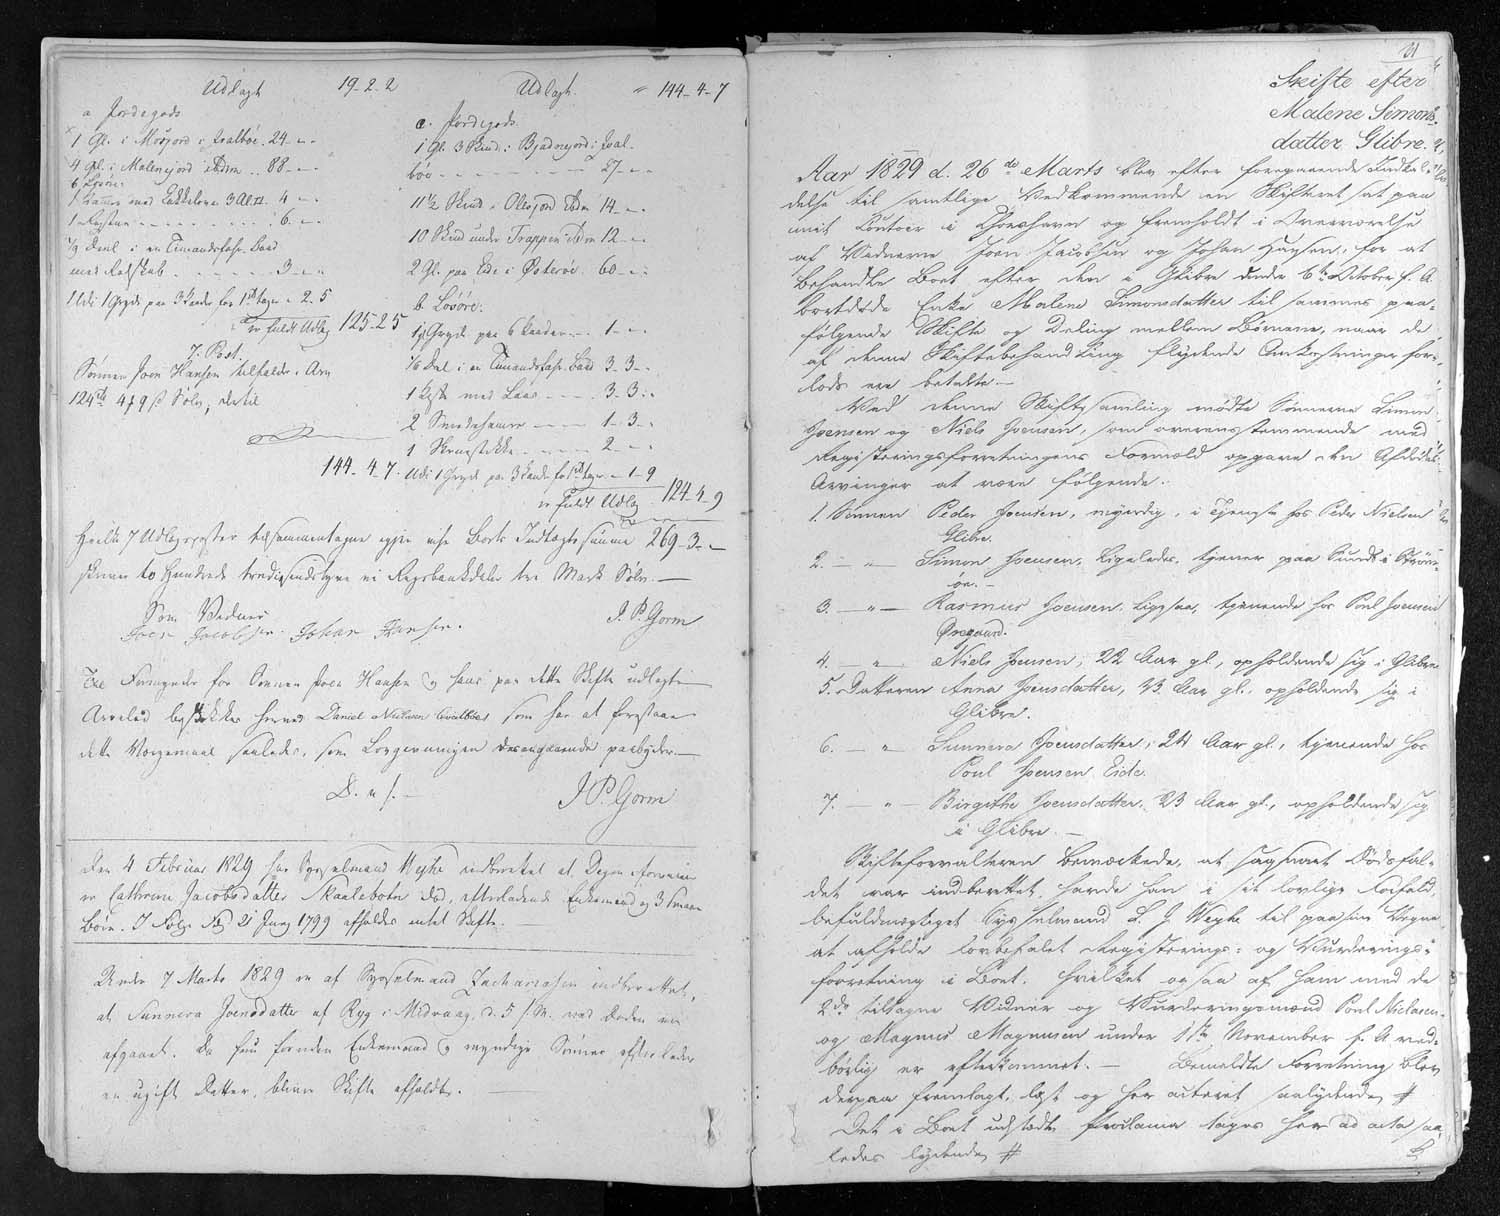 Udlagt 19-2-2
a Jordegods
1 Gl. i Mosjord i Qvalböe. 24 - -
4 Gl. i Malenejord ibdm .. 88 - -
6 Lösöre:
med 4 -
1 6. -
1/3 Deel i en Timandsfahr Baad
med Redskab 3 - -
Udi 1 Gryde paa 3 Kander for - 2. 5
er fuldt Udlæg 125-2 5
7. Post.
Sönnen Joen Hansen tilfalder i Arv
124 rd 4 9 s Sölv, dertil
144-4-7
Udlagt. 144-4-7
a. Jordegods
1 Gl. 3 Skind i Qval-
böe 27 - -
11½ Skind i ibdm 14 - -
10 Skind under Trappen ibdm 12 - -
2 Gl. paa Eide i Österöe. 60 - -
b Lösöre.
1 Gryde paa 6 Kander 1 - -
1/6 Deel i en Timandsfahr. Baad 3 3 -
1 Kiste med Laas 3. 3. -
2 1 - 3 -
1 2. -
Udi 1 Gryde paa 3 Kander for - 1 - 9
er fuldt Udlæg 124-4-9
Hvilke 7 Udlægsposter tilsammentagne igjen viise Boets Indtægtssumma 269-3- -
skriver to Hundrede tredsindstyve ni Rigsbankdaler tre Mark Sölv. —
Som Vidner J. P. Gorm
Joen Jacobsen. Johan Hansen.
Til Formynder for Sönnen Joen Hansen og hans paa dette Skifte udlagte
Arvelod beskikkes herved Daniel Nielsen Qvalböe, som har at forestaae
dette Værgemaal saaledes, som Lovgivningen desangaaende paabyder. —
D. u s. — J P. Gorm
Den 4 Februar 1829 har Sysselmand Weyhe indberettet at Degn
er Cathrine Jacobsdatter Skaalebotn död, efterladende Enkemand og 3
Börn. I Fölge Pl. 21 Juny 1799 afholdes intet Skifte. —
Under 7 Marts 1829 er af Sysselmand Zachariasen indberettet,
at Sunneva Joensdatter af Ryg i Midvaag, d. 5 s. M. ved Döden er
afgaaet. Da hun foruden Enkemand og myndige Sönner efterlader
en ugift Datter, bliver Skifte afholdt. —
21
Skifte efter
Malene Simons-
datter Glibre.
Aar 1829 d. 26de Marts blev efter foregaaende Indkal-
delse til samtlige Vedkommende en Skifteret sat paa
mit Contoir i Thorshavn og fremholdt i Overværelse
af Vidnerne Joen Jacobsen og Johan Hansen, for at
behandle Boet efter den i Glibre under 6te October f. A.
bortdöde Enke Malene Simonsdatter til sammes paa-
fölgende Skifte og Deling mellem Börnene, naar de
af denne Skiftebehandling flydende Omkostninger for-
lods ere betalte. —
Ved denne Skiftesamling mödte Sönnerne Simon
Joensen og Niels Joensen, som overensstemmende med
Registeringsforretningens Formeld opgave den Afdödes
Arvinger at være fölgende:
1. Sönnen Peder Joensen, myndig, i Tjeneste hos Peder Nielsen
Glibre.
2. — " — Simon Joensen, ligeledes, tjener paa Sundt i Ström-
öe. —
3. — " — Rasmus Joensen, ligesaa, tjenende hos Poul Joensen
Öregaard.
4. — " — Niels Joensen, 22 Aar gl., opholdende sig i Glibre
5. Datteren Anna Joensdatter, 23 Aar gl., opholdende sig i
Glibre.
6. — " — Sunneva Joensdatter, 24 Aar gl., tjenende hos
Poul Joensen Eide.
7. — " — Birgithe Joensdatter, 23 Aar gl., opholdende sig
i Glibre. —
Skifteforvalteren bemærkede, at sagsnart Dödsfal-
det var indberettet, havde han i sit lovlige Forfald,
befuldmægtiget Sysselmand L. J. Weyhe til paa sin Vegne
at afholde lovbefalet Registerings- og Vurderings-
forretning i Boet, hvilket ogsaa af ham med de
2de tiltagne Vidner og Vurderingsmænd Poul Niclasen
og Magnus Magnusen under 1ste November f. A ved-
börlig er efterkommet. — Bemeldte Forretning blev
derpaa fremlagt, læst og her acteret saalydende #
Det i Boet udstædte Proclama tages her ad acta saa-
ledes lydende, #